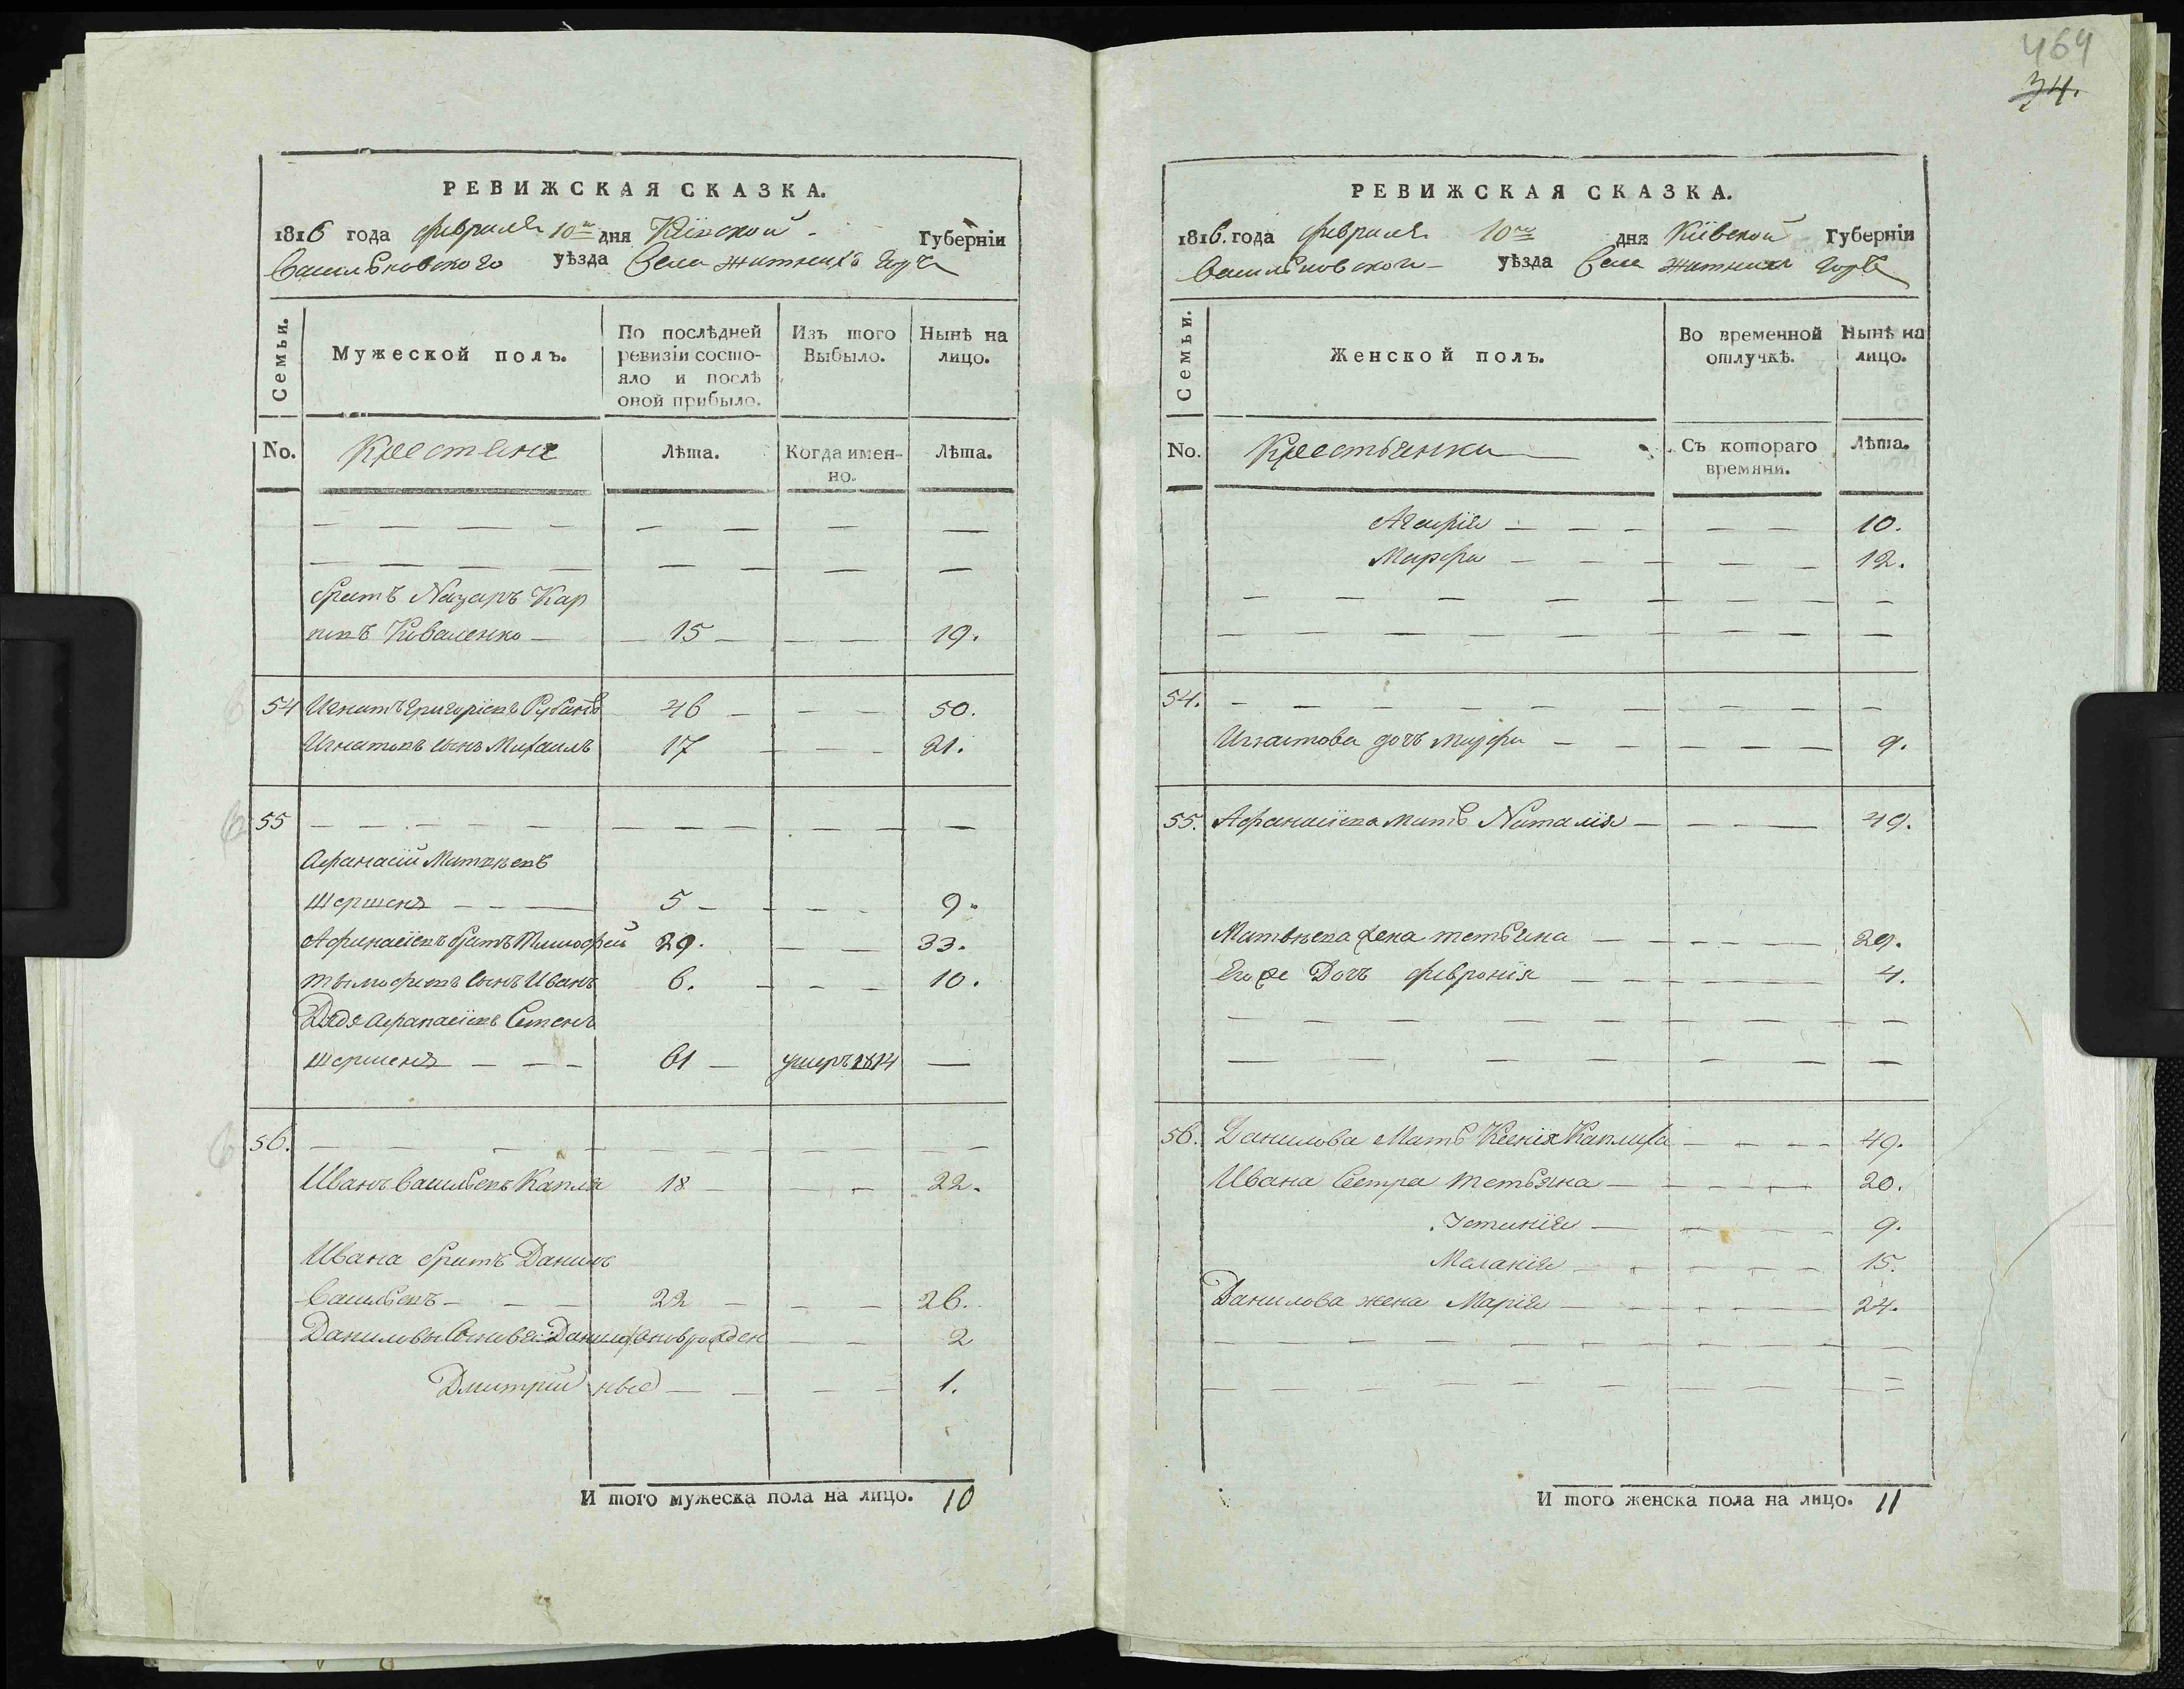 464
34.
РЕВИЖСКАЯ СКАЗКА.
1816 года февраля 10го дня Кіевской Губерніи
Васильковского уѣзда Села Житнихъ Горъ
Семьи.
Мужеской полъ.
По послѣдней ревизіи состояло и послѣ оной прибыло.
Изъ того Выбыло.
Нынѣ на лицо.
No. Крестяне Лѣта. Когда именно. Лѣта.
братъ Назаръ Кар
повъ Коваленко 15 19.
54 Игнатъ Григоріевъ Рубанъ 46 50.
Игнатовъ сынъ Михаилъ 17 21.
55
Афанасій Матвѣевъ
Шершень 5 9.
Афанасіевъ братъ Тимофей 29. 33.
Тымофеевъ сынъ Иванъ 6. 10.
Дядя Афанасіевъ Семенъ
Шершень 61 умеръ 1814
56.
Иванъ Васильевъ Капля 18 22.
Ивана братъ Данило
Васильевъ 22 26.
Даниловы Сыновья Данило новорожден 2
Дмитрій ные 1.
И того мужеска пола на лицо. 10
РЕВИЖСКАЯ СКАЗКА.
1816. года февраля 10го дня Кіевской Губерніи
Васильковского уѣзда Села Житнихъ Горъ
Семьи.
Женской полъ.
Во временной отлучкѣ.
Нынѣ на лицо.
No. Крестьянки Съ котораго времяни. Лѣта.
Агафія 10.
Марфа 12.
54.
Игнатова дочь Марфа 9.
55. Афанасіева мать Наталія 49.
Матвѣева жена Тетьяна 29.
Его же Дочь Февронія 4.
56. Данилова Мать Ксенія Каплиха 49.
Ивана Сестра Тетьяна 20.
Устинія 9.
Меланія 15.
Данилова жена Марія 24.
И того женска пола на лицо. 11